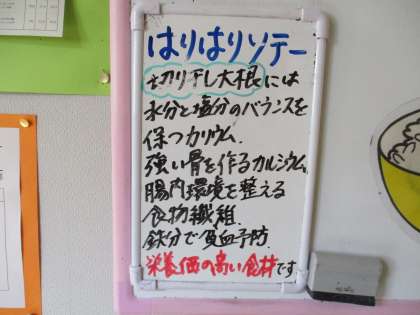 はりはりソテー
切り干し大根には
水分と塩分のバランスを
保つカリウム.
強い骨を作るカルシウム.
腸内環境を整える
食物繊維.
鉄分で貧血予防.
栄養価の高い食材です